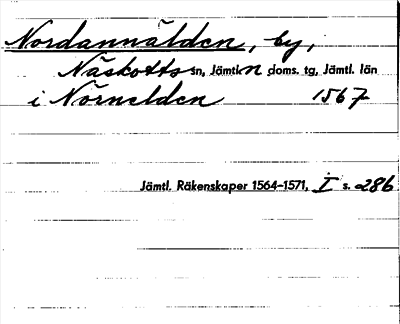 Nordannälden, by,
Näskotts sn, Jämtl. n doms. tg, Jämtl. län
i Nörnelden 1567
Jämtl. Räkenskaper 1564–1571, I s. 286